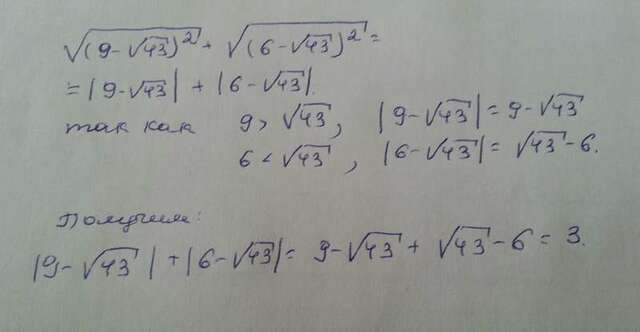 √(9-√43)² + √(6-√43)² =
= |9-√43| + |6-√43|.
так как 9 > √43, |9-√43| = 9-√43
6 < √43, |6-√43| = √43-6.
Получим:
|9-√43| + |6-√43| = 9-√43 + √43-6 = 3.